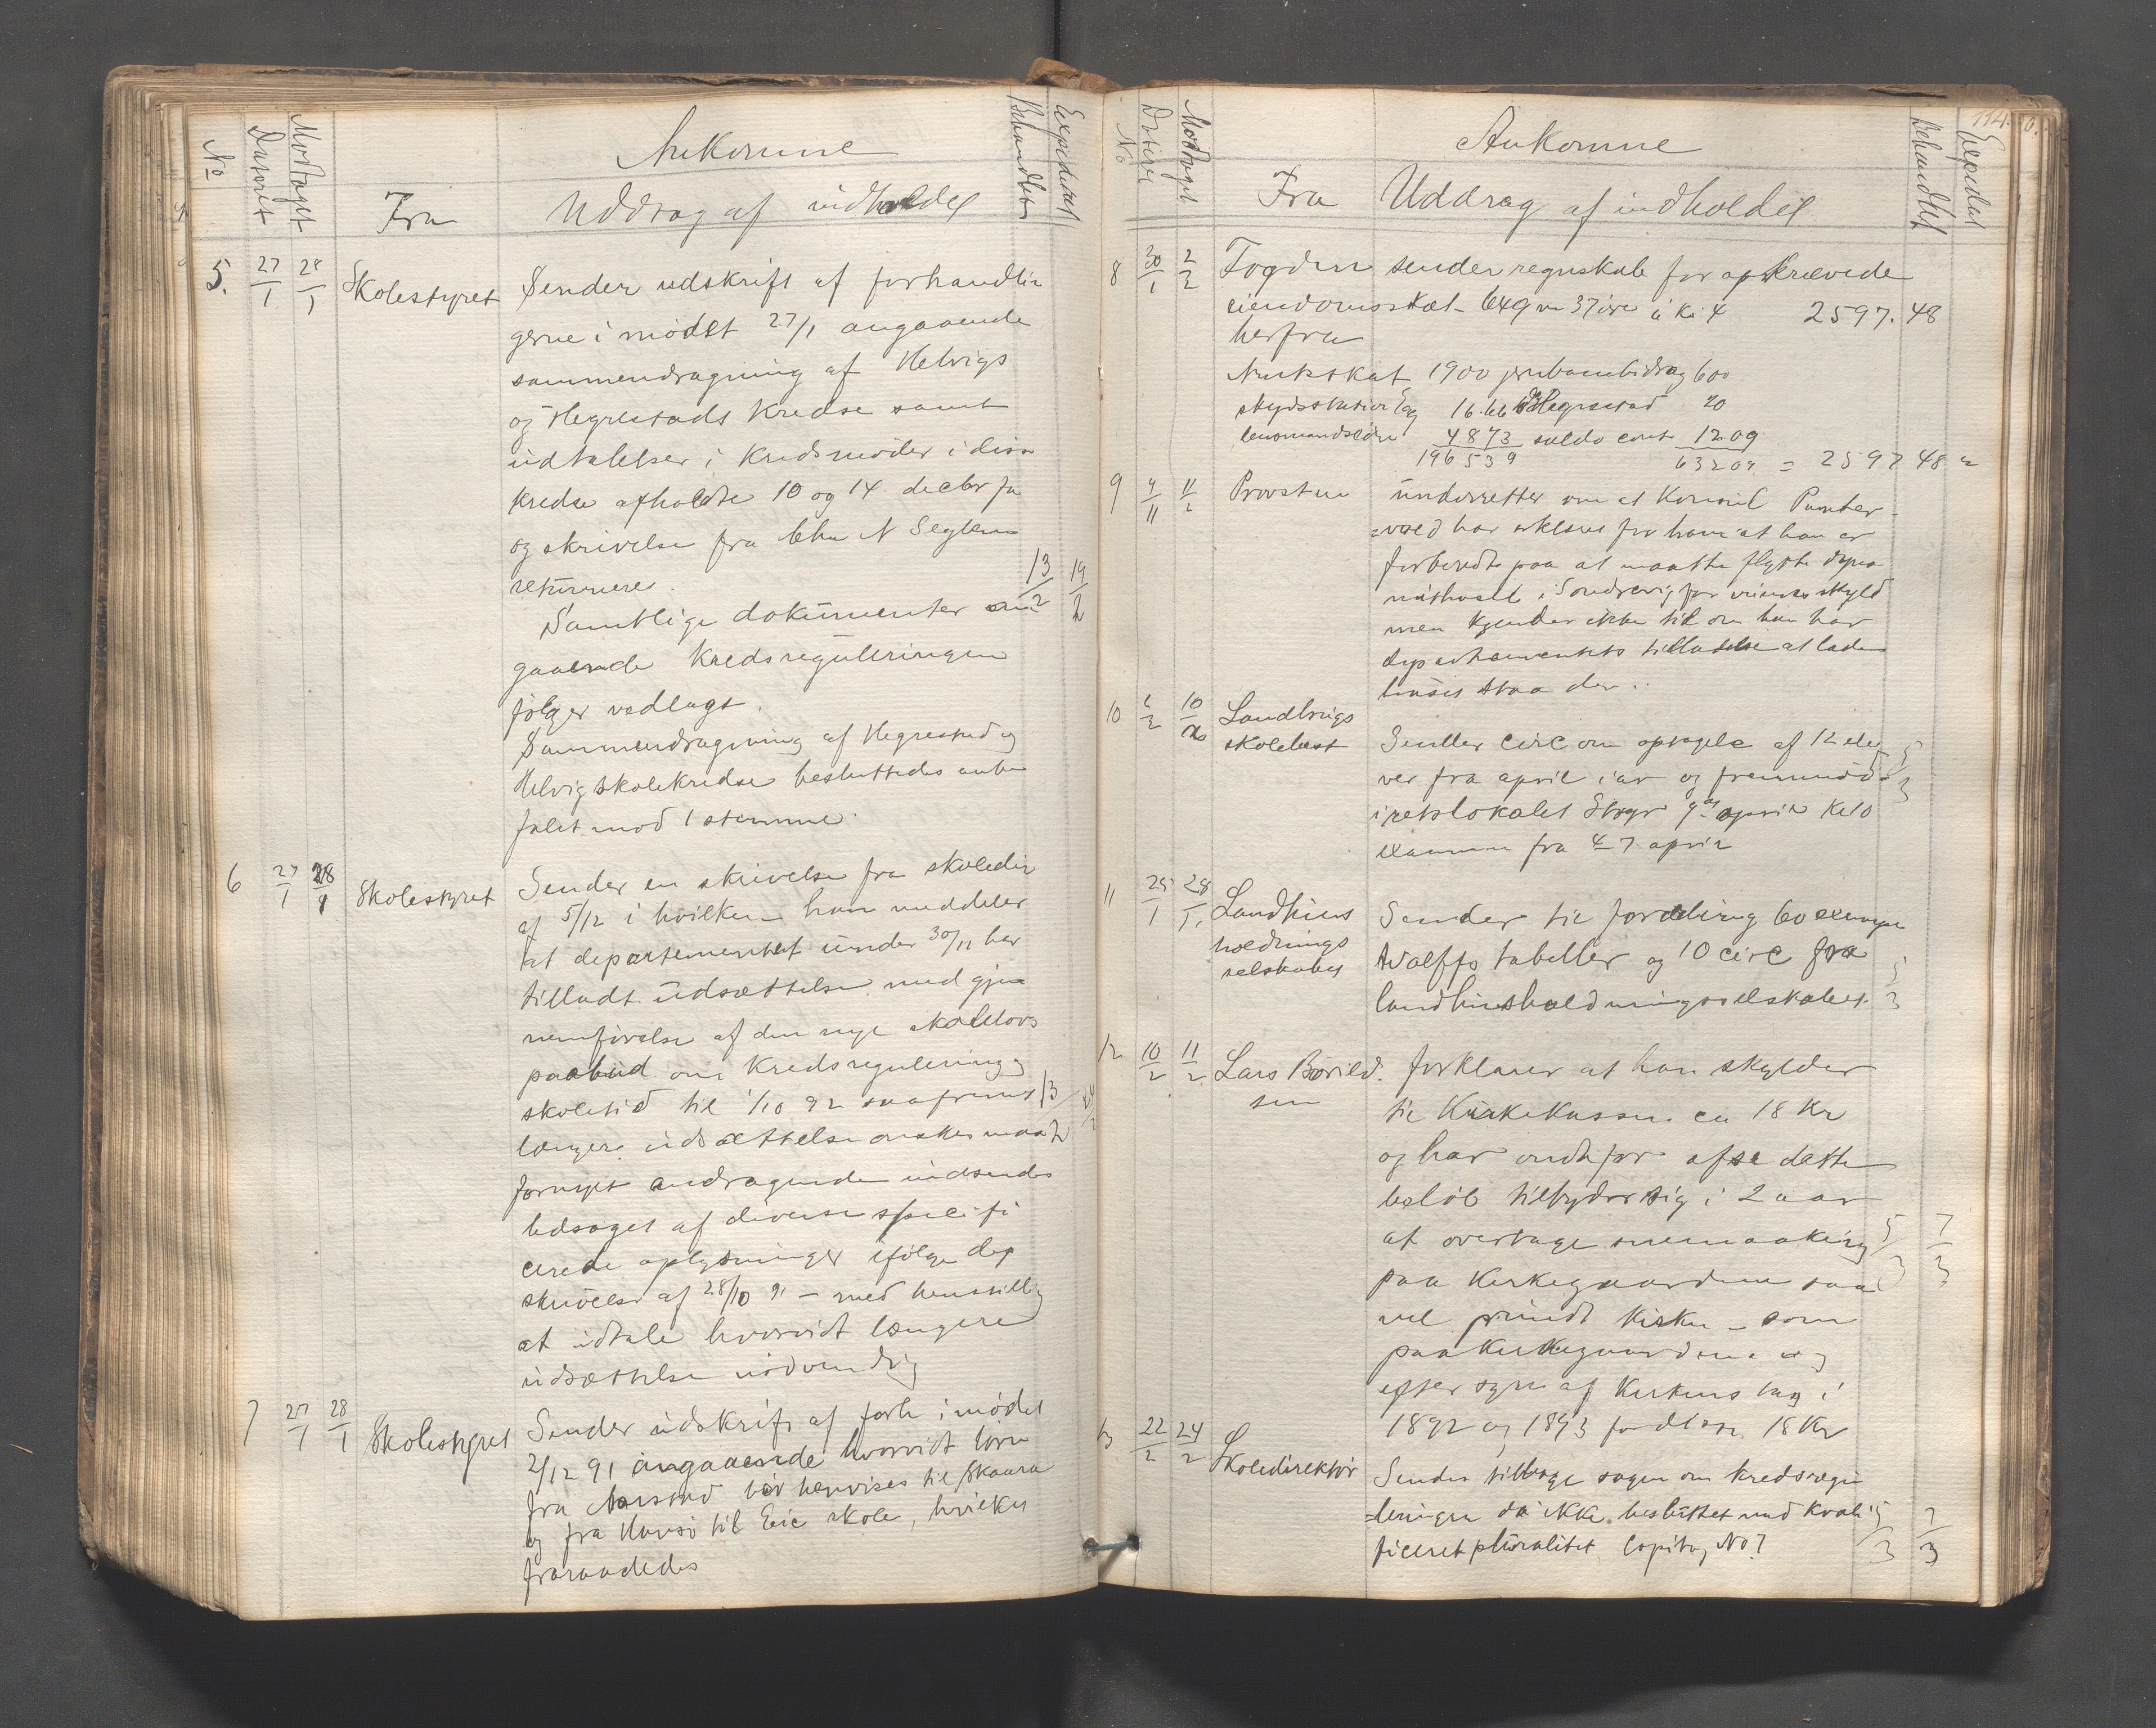 No Dateret Modtaget Fra
Ankomne
Uddrag af indholdet
Behandlet Expederet
5. 27/1 28/1 Skolestyret Sender udskrift af forhandlin
gerne i mødet 27/1 angaaende
sammendragning af Helvigs
og Hegrestads Kredse samt
udtalelser i Kredsmøder i disse
Kredse afholdte 10 og 14 decbr
og skrivelse fra Chr N Seglem
returneres.
Samtlige dokumenter an
gaaende Kredsreguleringen
følger vedlagt.
13/2 19/2
Sammendragning af Hegrestad og
Helvig skolekredse besluttedes anbe
falet mod 1 stemme.
6 27/1 28/1 Skolestyret Sender en skrivelse fra skoledir
af 5/12 i hvilken han meddeler
at departementet under 30/11 har
tilladt udsættelse med gjen
nemførelse af den nye skolelovs
paabud om Kredsregulering og
skoletid til 1/10 92 saafremt 13/2
længere udsættelse ønskes maa
fornyet andragende indsendes
ledsaget af diverse specifi
cerede oplysninger ifølge dep
skrivelse af 28/10 91 - med henstilling
at udtale hvorvidt længere
udsættelse nødvendig
7 27/1 28/1 Skolestyret Sender udskrift af forh i mødet
2/12 91 angaaende hvorvidt børn
fra Aarstad bør henvises til Skaara
og fra Havsø til Eie skole, hvilket
fraraadedes
114.
No Dateret Modtaget
Ankomne
Fra Uddrag af indholdet
Behandlet Expedet
8 30/1 2/2 Fogden sender regnskab for opkrævede
eiendomsskat 649 37 øre à Kr 4 2597.48
herfra
Amtskat 1900 jernbanebidrag 600
skydsstation Eeg 16.66 Hegrestad 20
lensmandsældre 48 73 saldo cont 12.09
1965 39 632 09 = 2597 48
9 4/11 11/2 Provsten underretter om at Konsul Punter-
=vold har erklæret for ham at han er
forberedt paa at maatte flytte dyna
mithuset i Sondrevig for skyld
men Kjender ikke til om han har
departementets tilladelse at lade
huset staa der.
10 6/2 10/2 Landbrugs
skolebest Sender circ om optagelse af 12 ele
ver fra april iaar og fremmøde
i retslokalet april Kl 10
examen fra 4-7 april
5/3
11 25/1 28/1 Landhus
holdnings
selskabet Sender til fordeling 60 exempl
Wolffs tabeller og 10 circ fra
landhusholdningsselskabet.
5/3
12 10/2 11/2 Lars Børild
sen forklarer at han skylder
til Kirkekassen ca 18 Kr
og har ondt for afse dette
beløb tilbyder sig i 2 aar
at overtage snemaaking
paa Kirkegaardene saa
vel rundt Kirken - som
paa Kirkegaardene og
eftersyn af Kirkens tag i
1892 og 1893 for 18 Kr
5/3 7/3
13 22/2 24/2 Skoledirektør Sender tilbage sagen om kredsregu
=leringen da ikke besluttet med kvali
ficeret pluralitet Copibog No 7
5/3 7/3